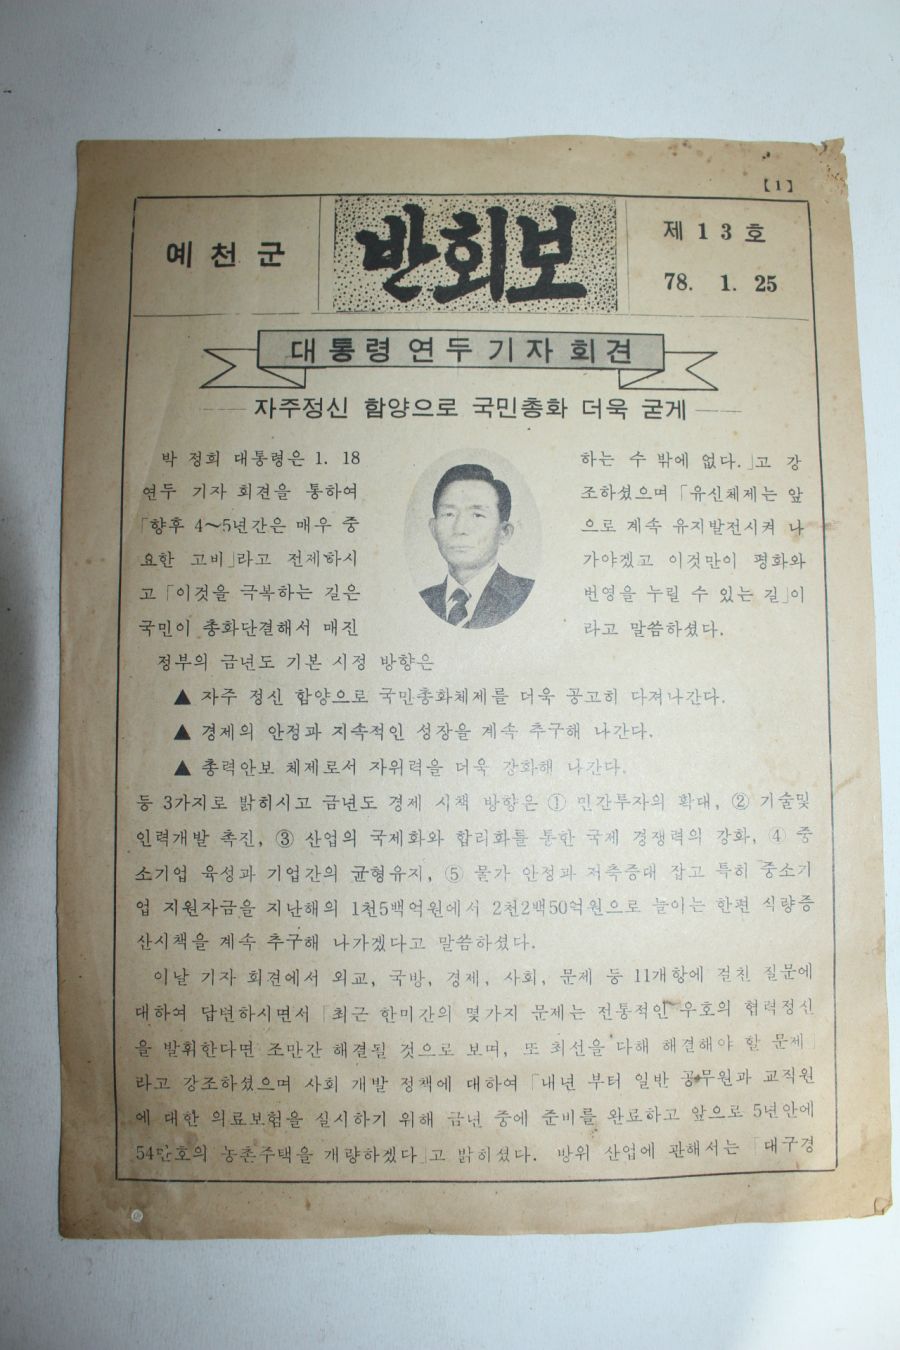 【1】
예천군
반회보
제13호
78. 1. 25
대통령연두기자회견
자주정신 함양으로 국민총화 더욱 굳게
박 정희 대통령은 1. 18
연두 기자 회견을 통하여
「향후 4~5년간은 매우 중
요한 고비」라고 전제하시
고 「이것을 극복하는 길은
국민이 총화단결해서 매진
하는 수 밖에 없다.」고 강
조하셨으며 「유신체제는 앞
으로 계속 유지발전시켜 나
가야겠고 이것만이 평화와
번영을 누릴 수 있는 길」이
라고 말씀하셨다.
정부의 금년도 기본 시정 방향은
▲ 자주 정신 함양으로 국민총화체제를 더욱 공고히 다져나간다.
▲ 경제의 안정과 지속적인 성장을 계속 추구해 나간다.
▲ 총력안보 체제로서 자위력을 더욱 강화해 나간다.
등 3가지로 밝히시고 금년도 경제 시책 방향은 ① 민간투자의 확대, ② 기술및
인력개발 촉진, ③ 산업의 국제화와 합리화를 통한 국제 경쟁력의 강화, ④ 중
소기업 육성과 기업간의 균형유지, ⑤ 물가 안정과 저축증대 잡고 특히 중소기
업 지원자금을 지난해의 1천5백억원에서 2천2백50억원으로 늘이는 한편 식량증
산시책을 계속 추구해 나가겠다고 말씀하셨다.
이날 기자 회견에서 외교, 국방, 경제, 사회, 문제 등 11개항에 걸친 질문에
대하여 답변하시면서 「최근 한미간의 몇가지 문제는 전통적인 우호의 협력정신
을 발휘한다면 조만간 해결될 것으로 보며, 또 최선을 다해 해결해야 할 문제」
라고 강조하셨으며 사회 개발 정책에 대하여 「내년 부터 일반 공무원과 교직원
에 대한 의료보험을 실시하기 위해 금년 중에 준비를 완료하고 앞으로 5년안에
54만호의 농촌주택을 개량하겠다」고 밝히셨다. 방위 산업에 관해서는 「대구경